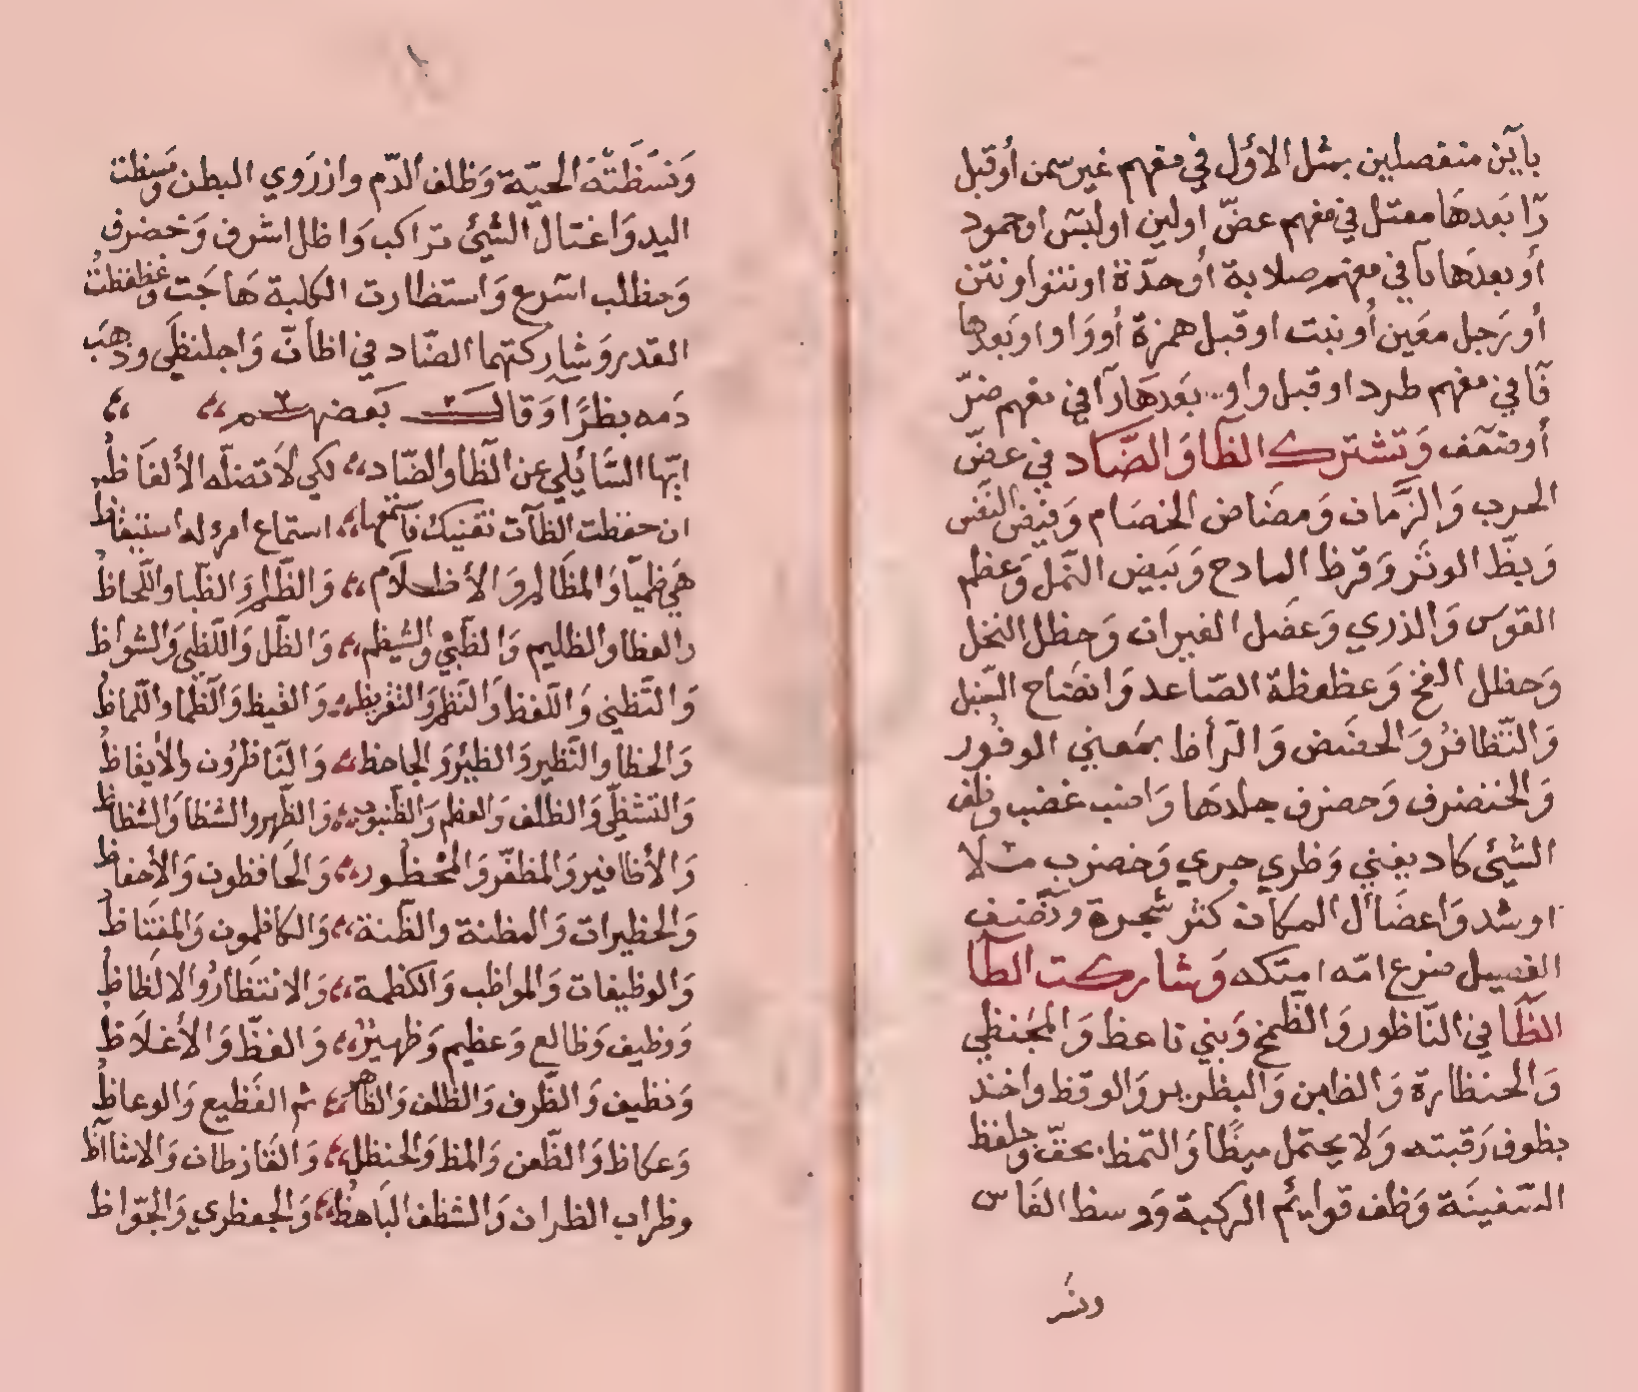 بآين منفصلين بمثل الأول في مفهم غير سمن أو قبل
رآ بعدها معتل في مفهم عض او لين او لبس او جمود
أو بعدها بآ في مفهم صلابة أو حدة او نتو او نتن
أو رجل معين أو نبت او قبل همزة أو واو او بعدها
فآ في مفهم طرد او قبل واو بعدها رآ في مفهم ضر
أو ضعف وتشترك الظآ والضاد في عض
الحرب والزمان ومضاض الخصام وفيض النفس
وبظ الوتر وقرظ المادح وبيض النمل وعظم
القوس والذري وعضل الفيران وحظل النخل
وحظل الفخ وعظعظة الصاعد وانضاح السنبل
والتظافر والحضض والرأظ بمعني الوفور
والخنضرف وحضرف جلدها وامنب غضب وظف
الشئ كاد يفني وظري جري وخضرب ملأ
او شد واعضأل المكان كثر شجره ونضف
الفصيل ضرع امه امتكه وشاركت الطآ
الظآ في الناظور والظمخ وبني ناعظ والمجنظي
والحنظارة والظابن والبظرير والوقظ واخذ
بظوف رقبته ولا يحتمل ميظا والتمظ بحقه وجلفظ
السفينة وظف قوائم الركبة ووسط الفاس
ونشر
ونشظته الحية وظلف الدم وازروي البطن ومسظت
اليد واغتال الشئ تراكب واظل اشرف وخضرف
وحظلب اسرع واستظارت الكلبة هاجت وغظغظت
القدر وشاركتهما الضاد في اظآن واجلنظي وذهب
دمه بظرا وقال بعضهم
ايها السائلي عن الظآ والضاد لكي لا تضله الألفاظ
ان حفظت الظآت تغنيك فاسمعها استماع امرء له استيقاظ
هي ظميآ والمظالم والأظلام والظلم والظبا واللحاظ
والعظا والظليم والظبي والشيظم والظل واللظي والشواظ
والتظني واللفظ والنظم والتقريظ والقيظ والظما واللماظ
والحظا والنظير والظئر والجاحظ والناظرون والأيقاظ
والتشظي والظلف والعظم والظنبوب والظهر والشظا والشظاظ
والأظافير والمظفر والمحظور والحافظون والأحفاظ
والحظيرات والمظنة والظنة والكاظمون والمغتاظ
والوظيفات والمواظب والكظمة والانتظار والالظاظ
ووظيف وظالع وعظيم وظهير والفظ والأغلاظ
ونظيف والظرف والظلف والظاهر ثم الفظيع والوعاظ
وعكاظ والظعن والمظ والحنظل والقارظان والاشآظ
وظراب الظران والشظف الباهظ والجعظري والجواظ